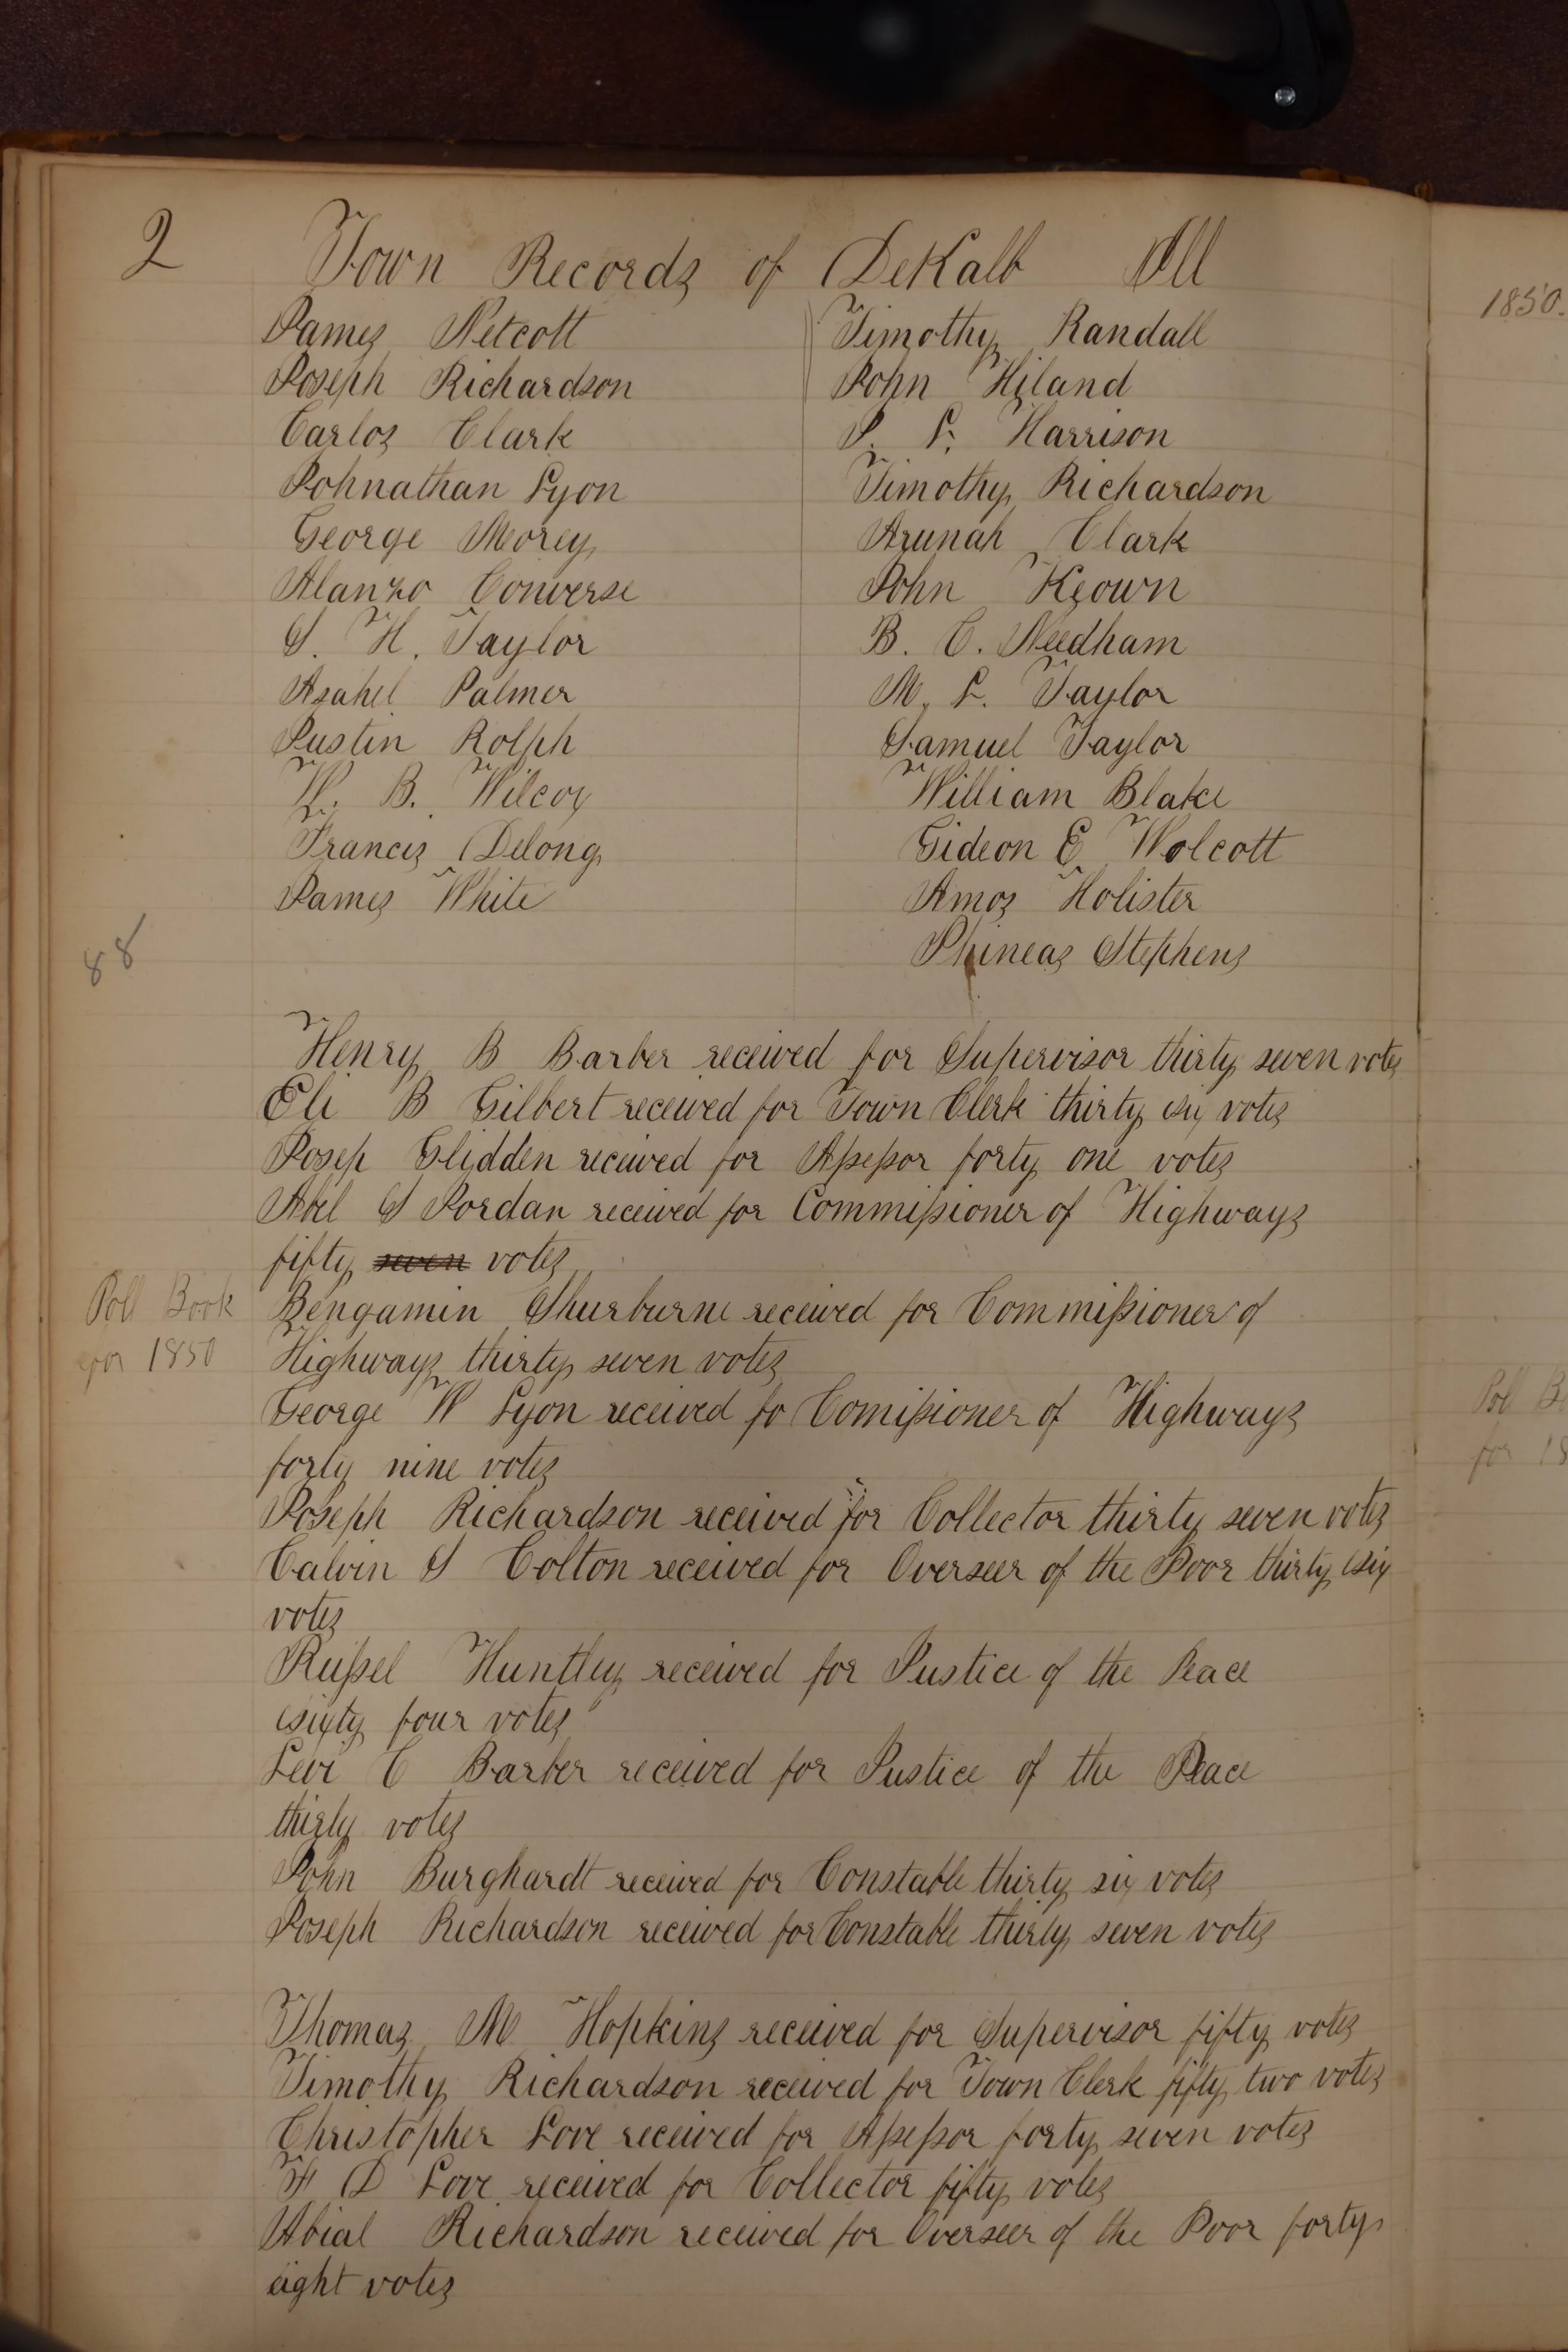 2 Town Records of DeKalb Ill
James Netcott
Joseph Richardson
Carlos Clark
Johnathan Lyon
George Morey
Alanzo Converse
S. H. Taylor
Asahel Palmer
Justin Rolph
W. B. Wilcox
Francis Delong
James White
Timothy Randall
John Hiland
J. L. Harrison
Timothy Richardson
Arunah Clark
John Keown
B. C. Needham
M. L. Taylor
Samuel Taylor
William Blake
Gideon E Wolcott
Amos Holister
Phineas Stephens
88
Henry B Barber received for Supervisor thirty seven votes
Eli B Gilbert received for Town Clerk thirty six votes
Josep Glidden received for Assessor forty one votes
Abel S Jordan received for Commissioner of Highways
fifty seven votes
Bengamin Shurburne received for Commissioner of
Highways thirty seven votes
George W Lyon received fo Comissioner of Highways
forty nine votes
Joseph Richardson received for Collector thirty seven votes
Calvin S Colton received for Overseer of the Poor thirty six
votes
Russel Huntley received for Justice of the Peace
sixty four votes
Levi C Barber received for Justice of the Peace
thirty votes
John Burghardt received for Constable thirty six votes
Joseph Richardson received for Constable thirty seven votes
Poll Book
for 1850
Thomas M Hopkins received for Supervisor fifty votes
Timothy Richardson received for Town Clerk fifty two votes
Christopher Love received for Assessor forty seven votes
D Love received for Collector fifty votes
Abial Richardson received for Overseer of the Poor forty
eight votes
1850.
Poll B
for 18